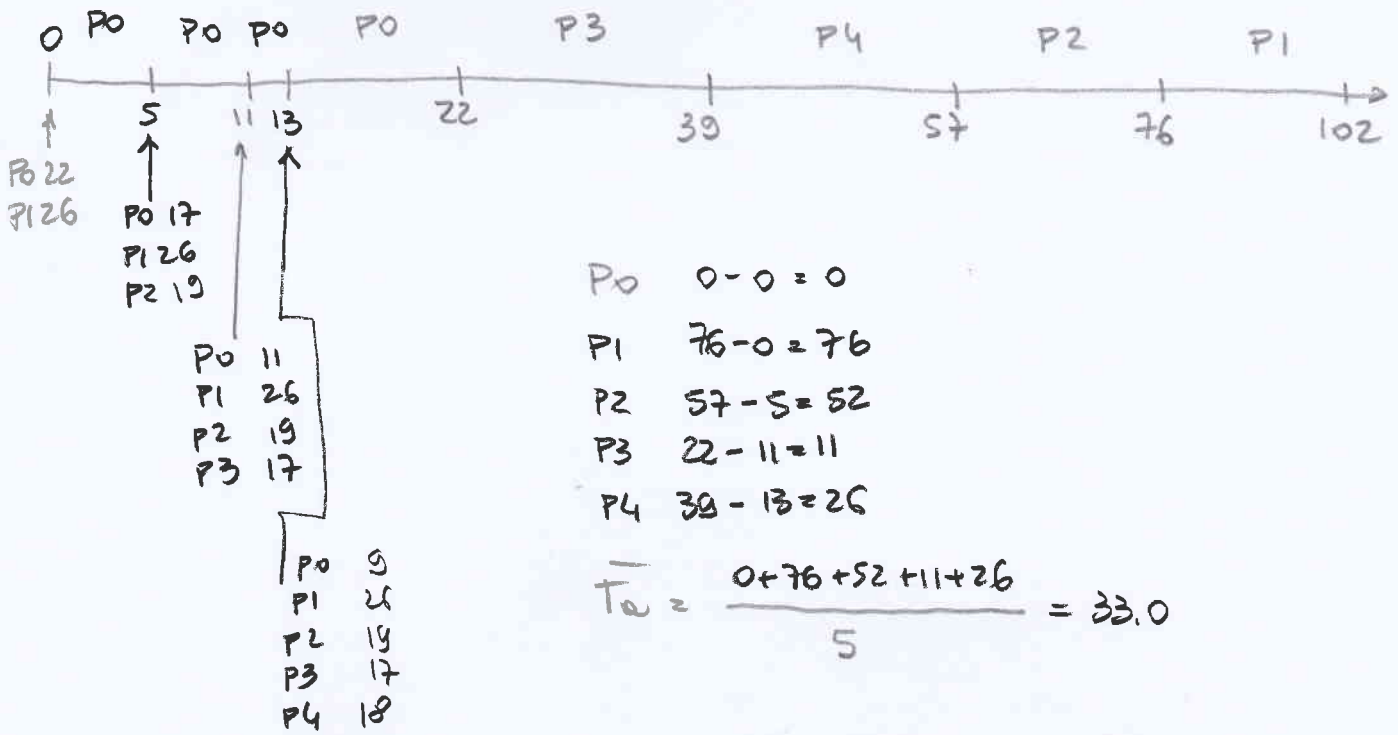 0 P0 P0 P0 P0 P3 P4 P2 P1
5 11 13 22 39 57 76 102
P0 22
P1 26
P0 17
P1 26
P2 19
P0 11
P1 26
P2 19
P3 17
P0 9
P1 26
P2 19
P3 17
P4 18
P0 0-0=0
P1 76-0=76
P2 57-5=52
P3 22-11=11
P4 39-13=26
Ta = 0+76+52+11+26 / 5 = 33.0